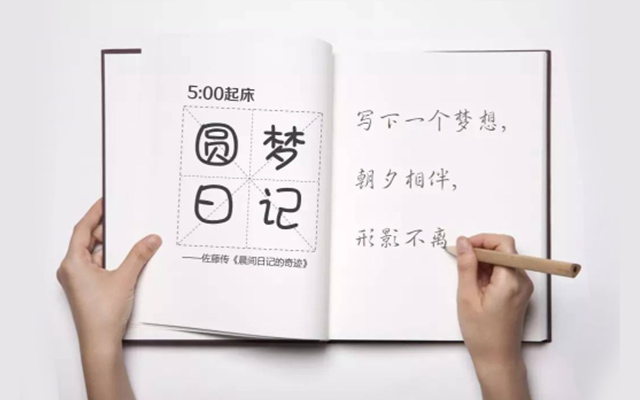 5:00起床
圆梦
日记
——佐藤传《晨间日记的奇迹》
写下一个梦想，
朝夕相伴，
形影不离